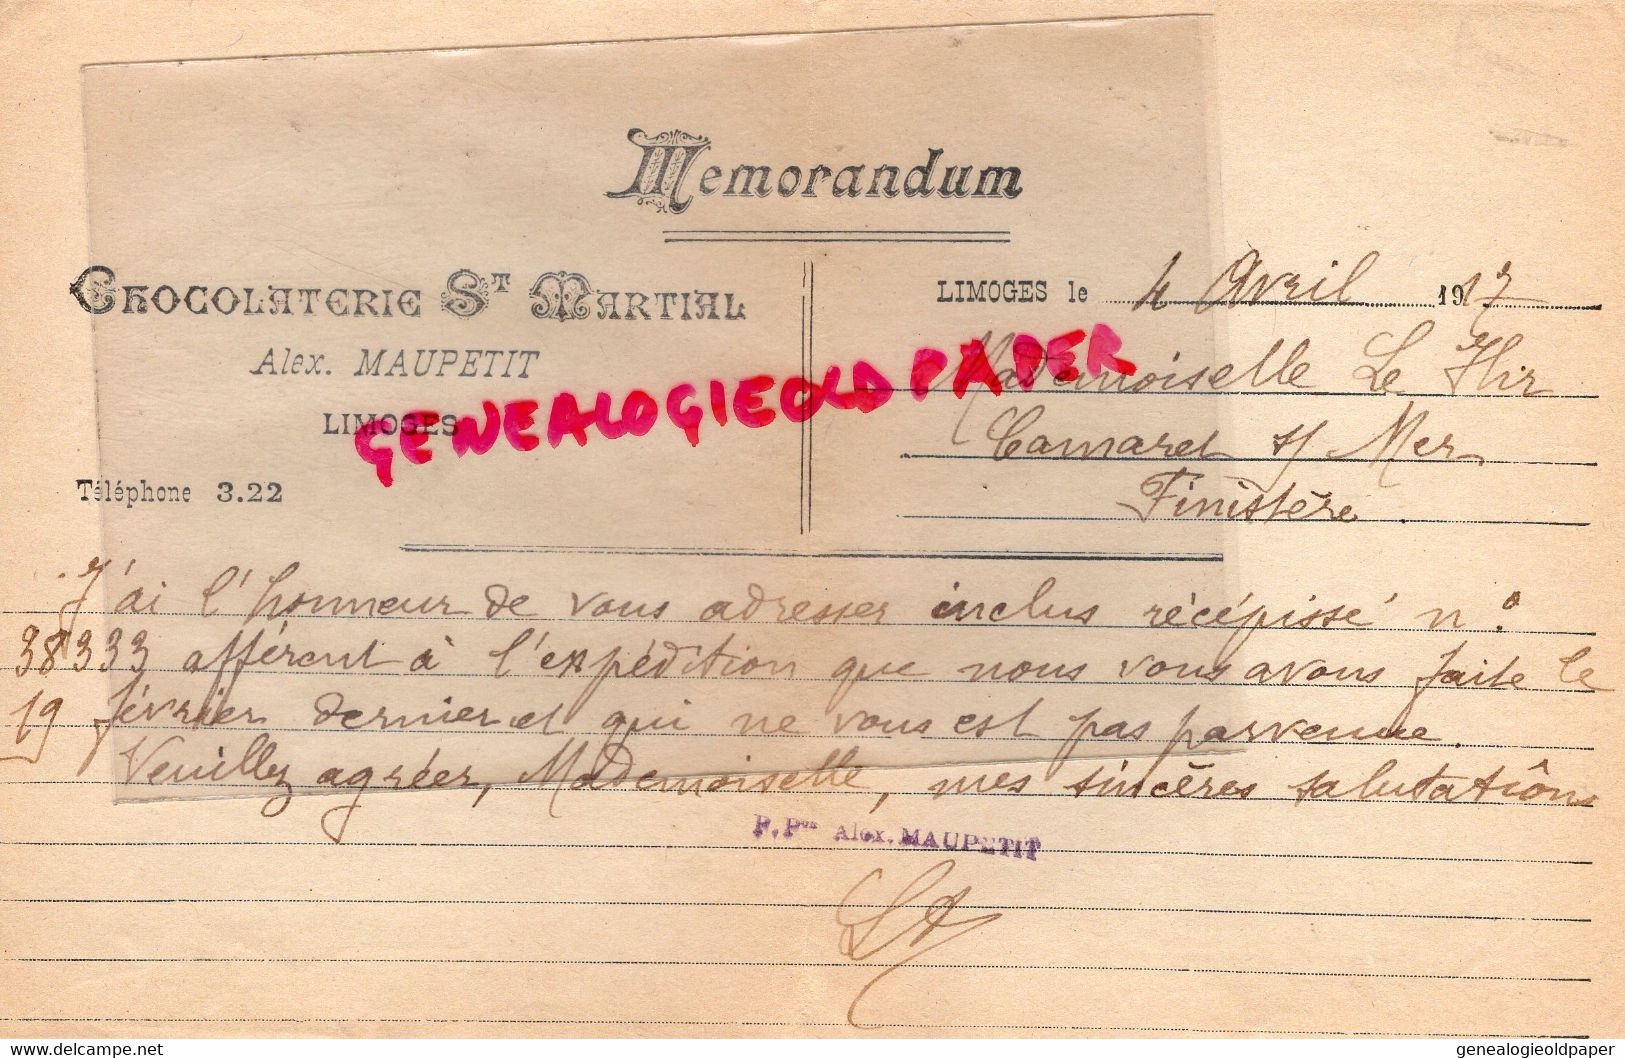 Memorandum
CHOCOLATERIE ST MARTIAL
Alex. MAUPETIT
LIMOGES
Téléphone 3.22
LIMOGES le 4 Avril 1917
Mademoiselle Le Hir
Camaret s/ Mer
Finistère.
GENEALOGIEOLDPAPER
J'ai l'honneur de vous adresser inclus récépissé n°
38333 afférent à l'expédition que nous vous avons faite le
19 février dernier et qui ne vous est pas parvenue.
Veuillez agréer, Mademoiselle, mes sincères salutations
P. Pon Alex. MAUPETIT
delcampe.net
genealogieoldpaper